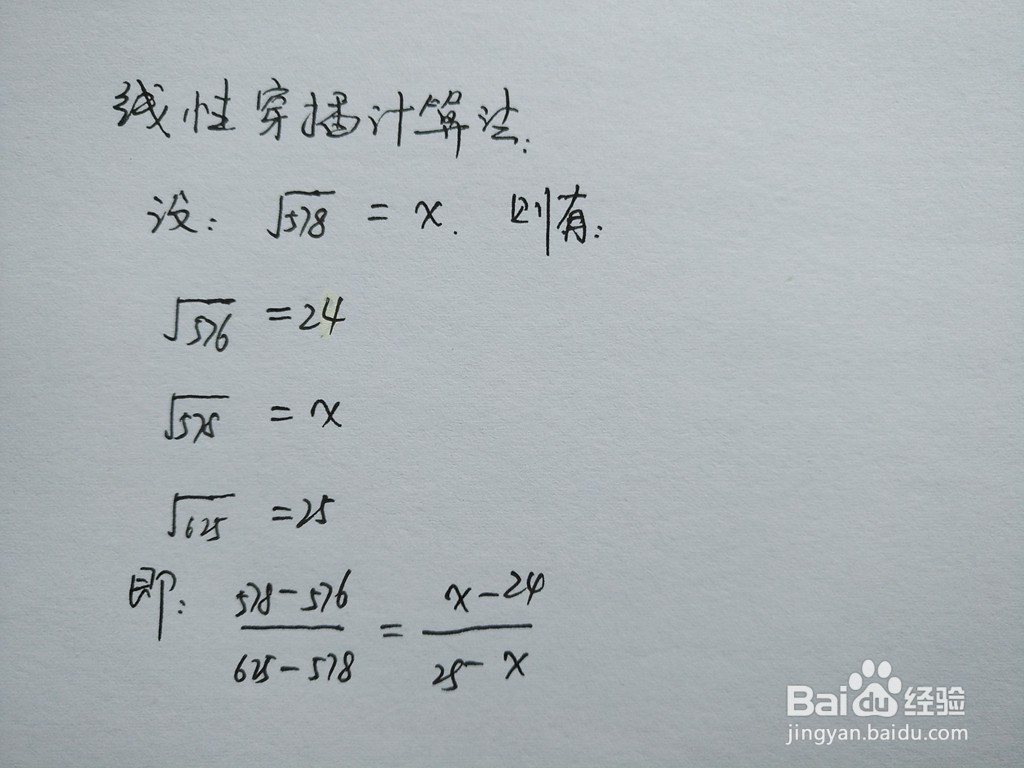 线性穿插计算法:
设: √578 = x. 则有:
√576 = 24
√578 = x
√625 = 25
即: (578-576)/(625-578) = (x-24)/(25-x)
Baidu经验
jingyan.baidu.com